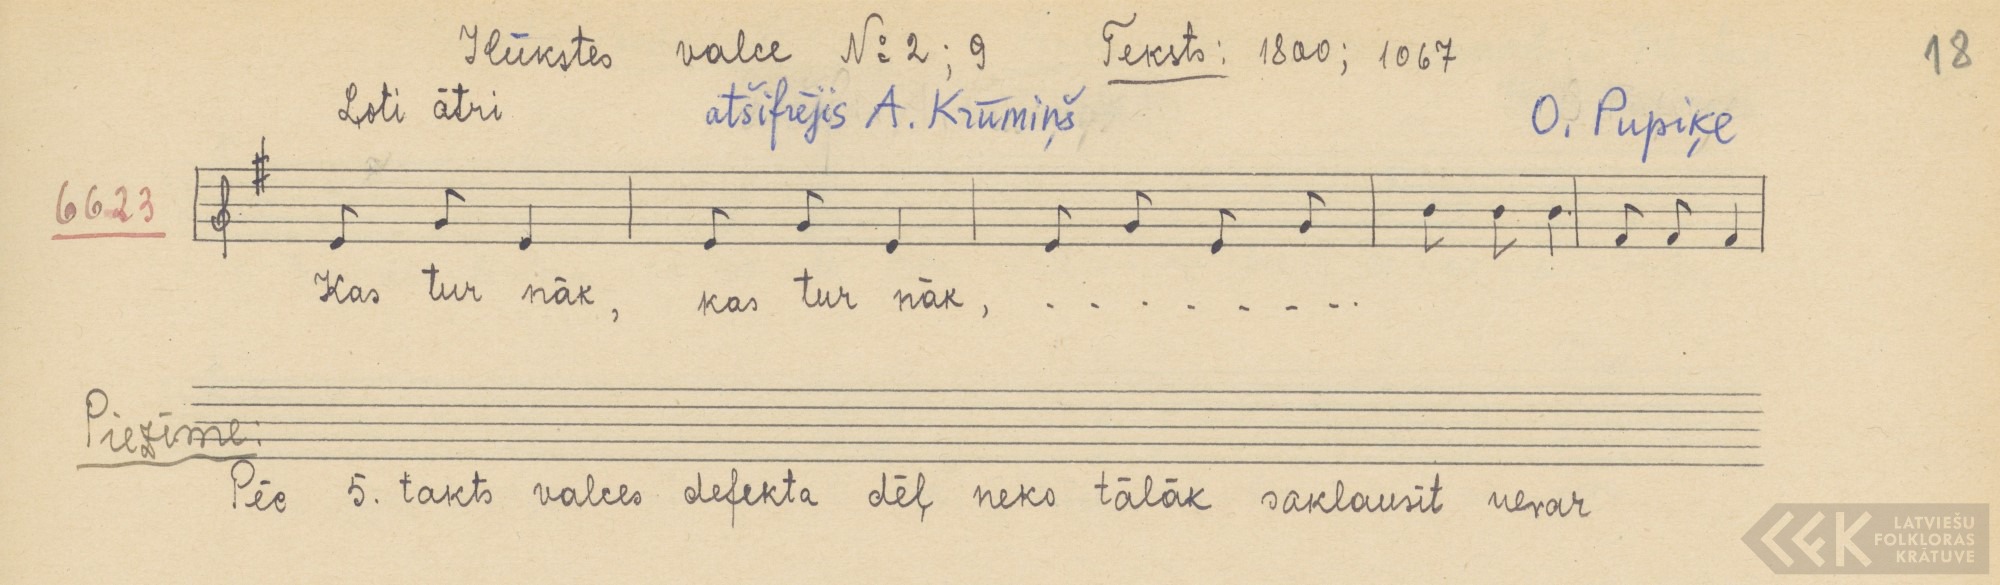 Ilūkstes valce № 2; 9 Teksts: 1800; 1067 18
Ļoti ātri atšifrējis A. Krūmiņš O. Pupiķe
6623
Kas tur nāk, kas tur nāk, . - . - . - . - - .
Piezīme:
Pēc 5. takts valces defekta dēļ neko tālāk saklausīt nevar
LATVIEŠU
FOLKLORAS
KRĀTUVE